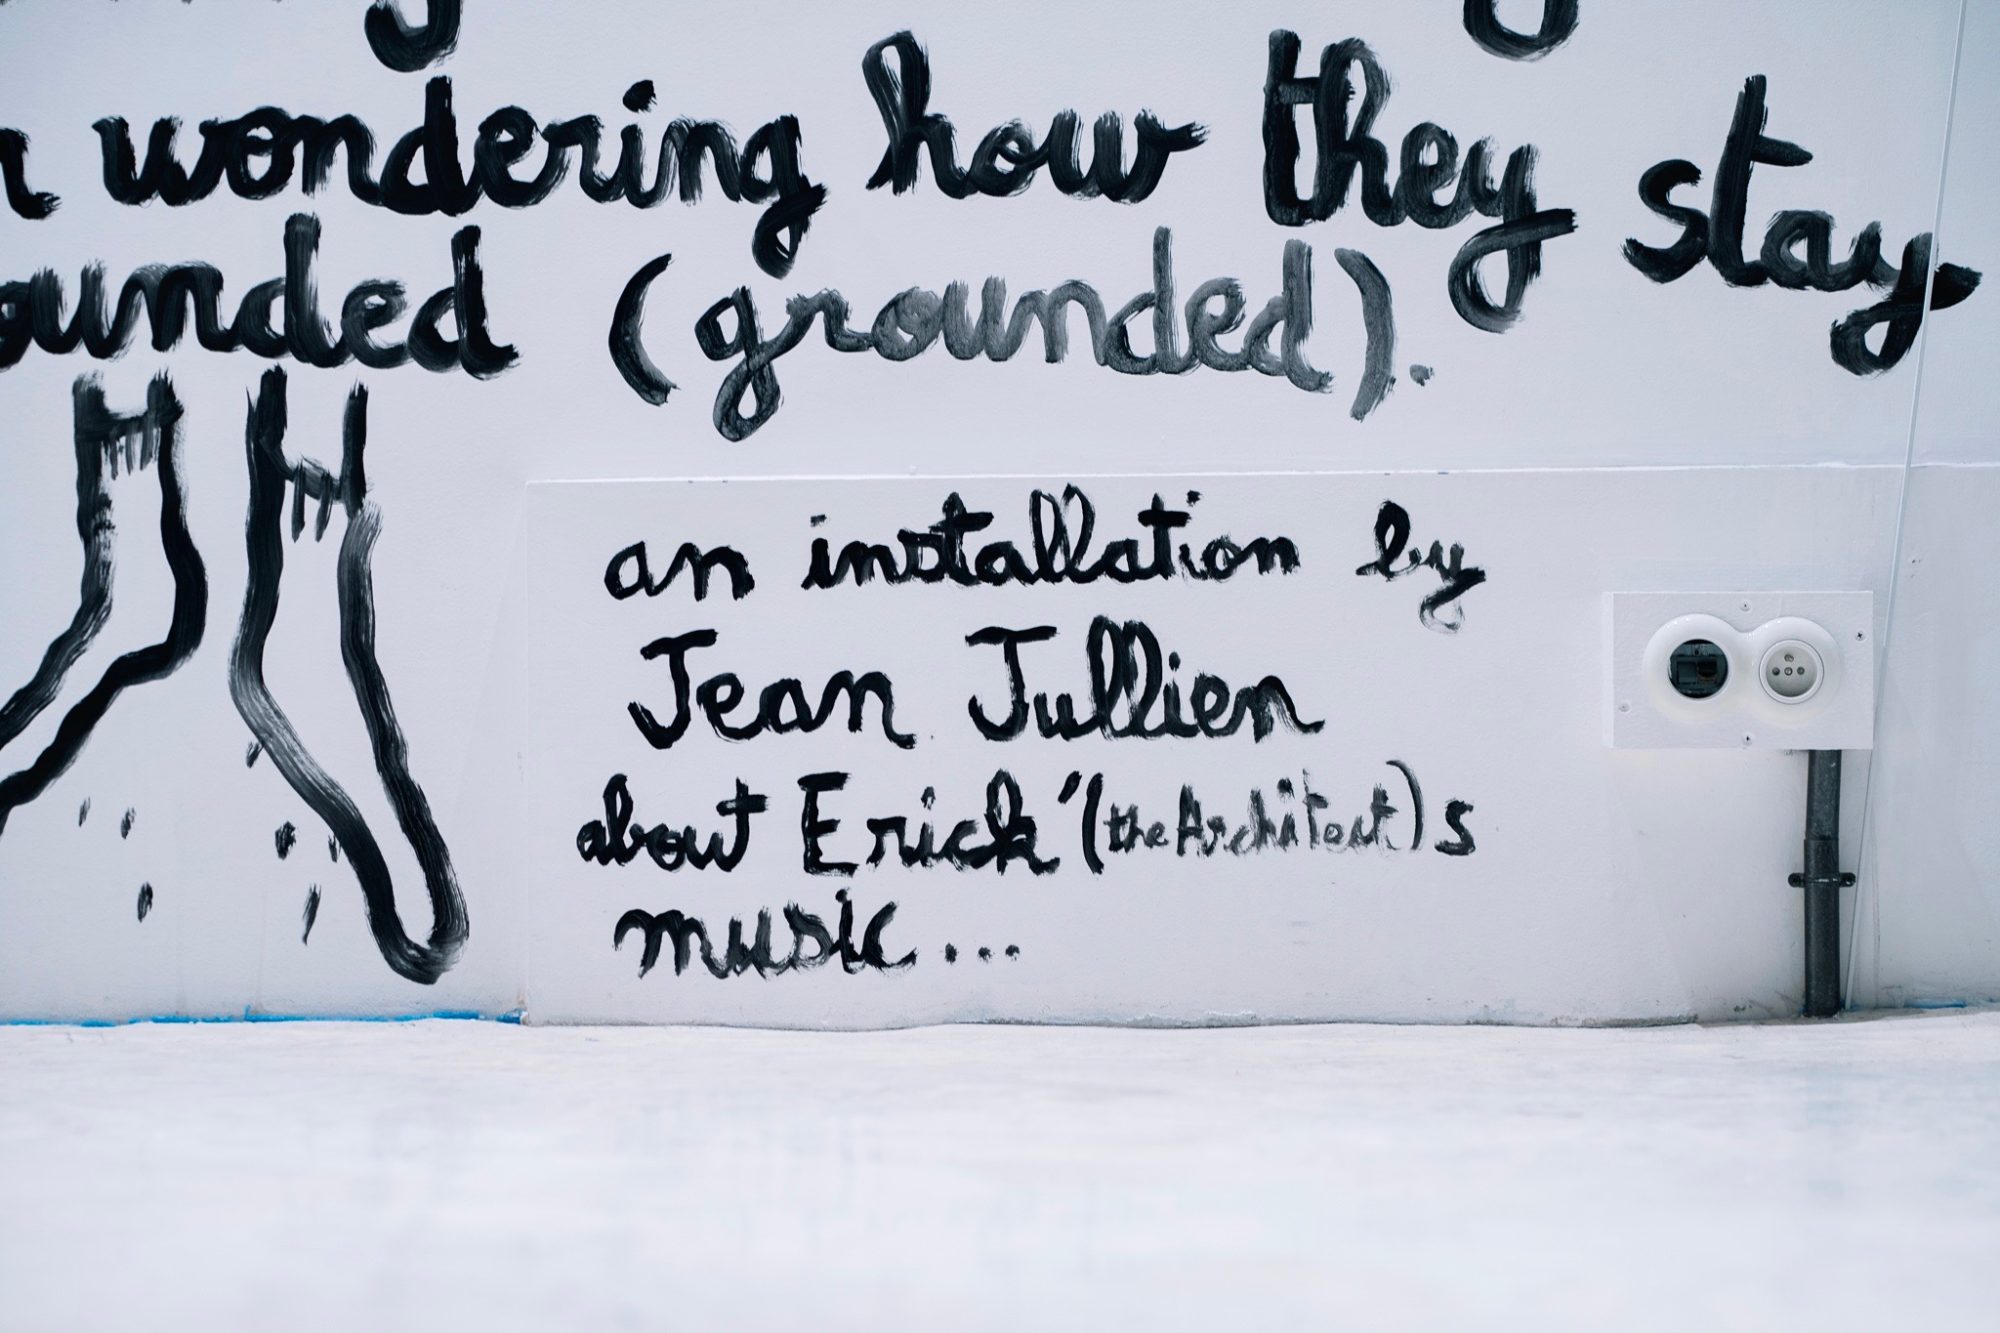 wondering how they stay
ounded (grounded).
an installation by
Jean Jullien
about Erick '(the Architect)s
music...